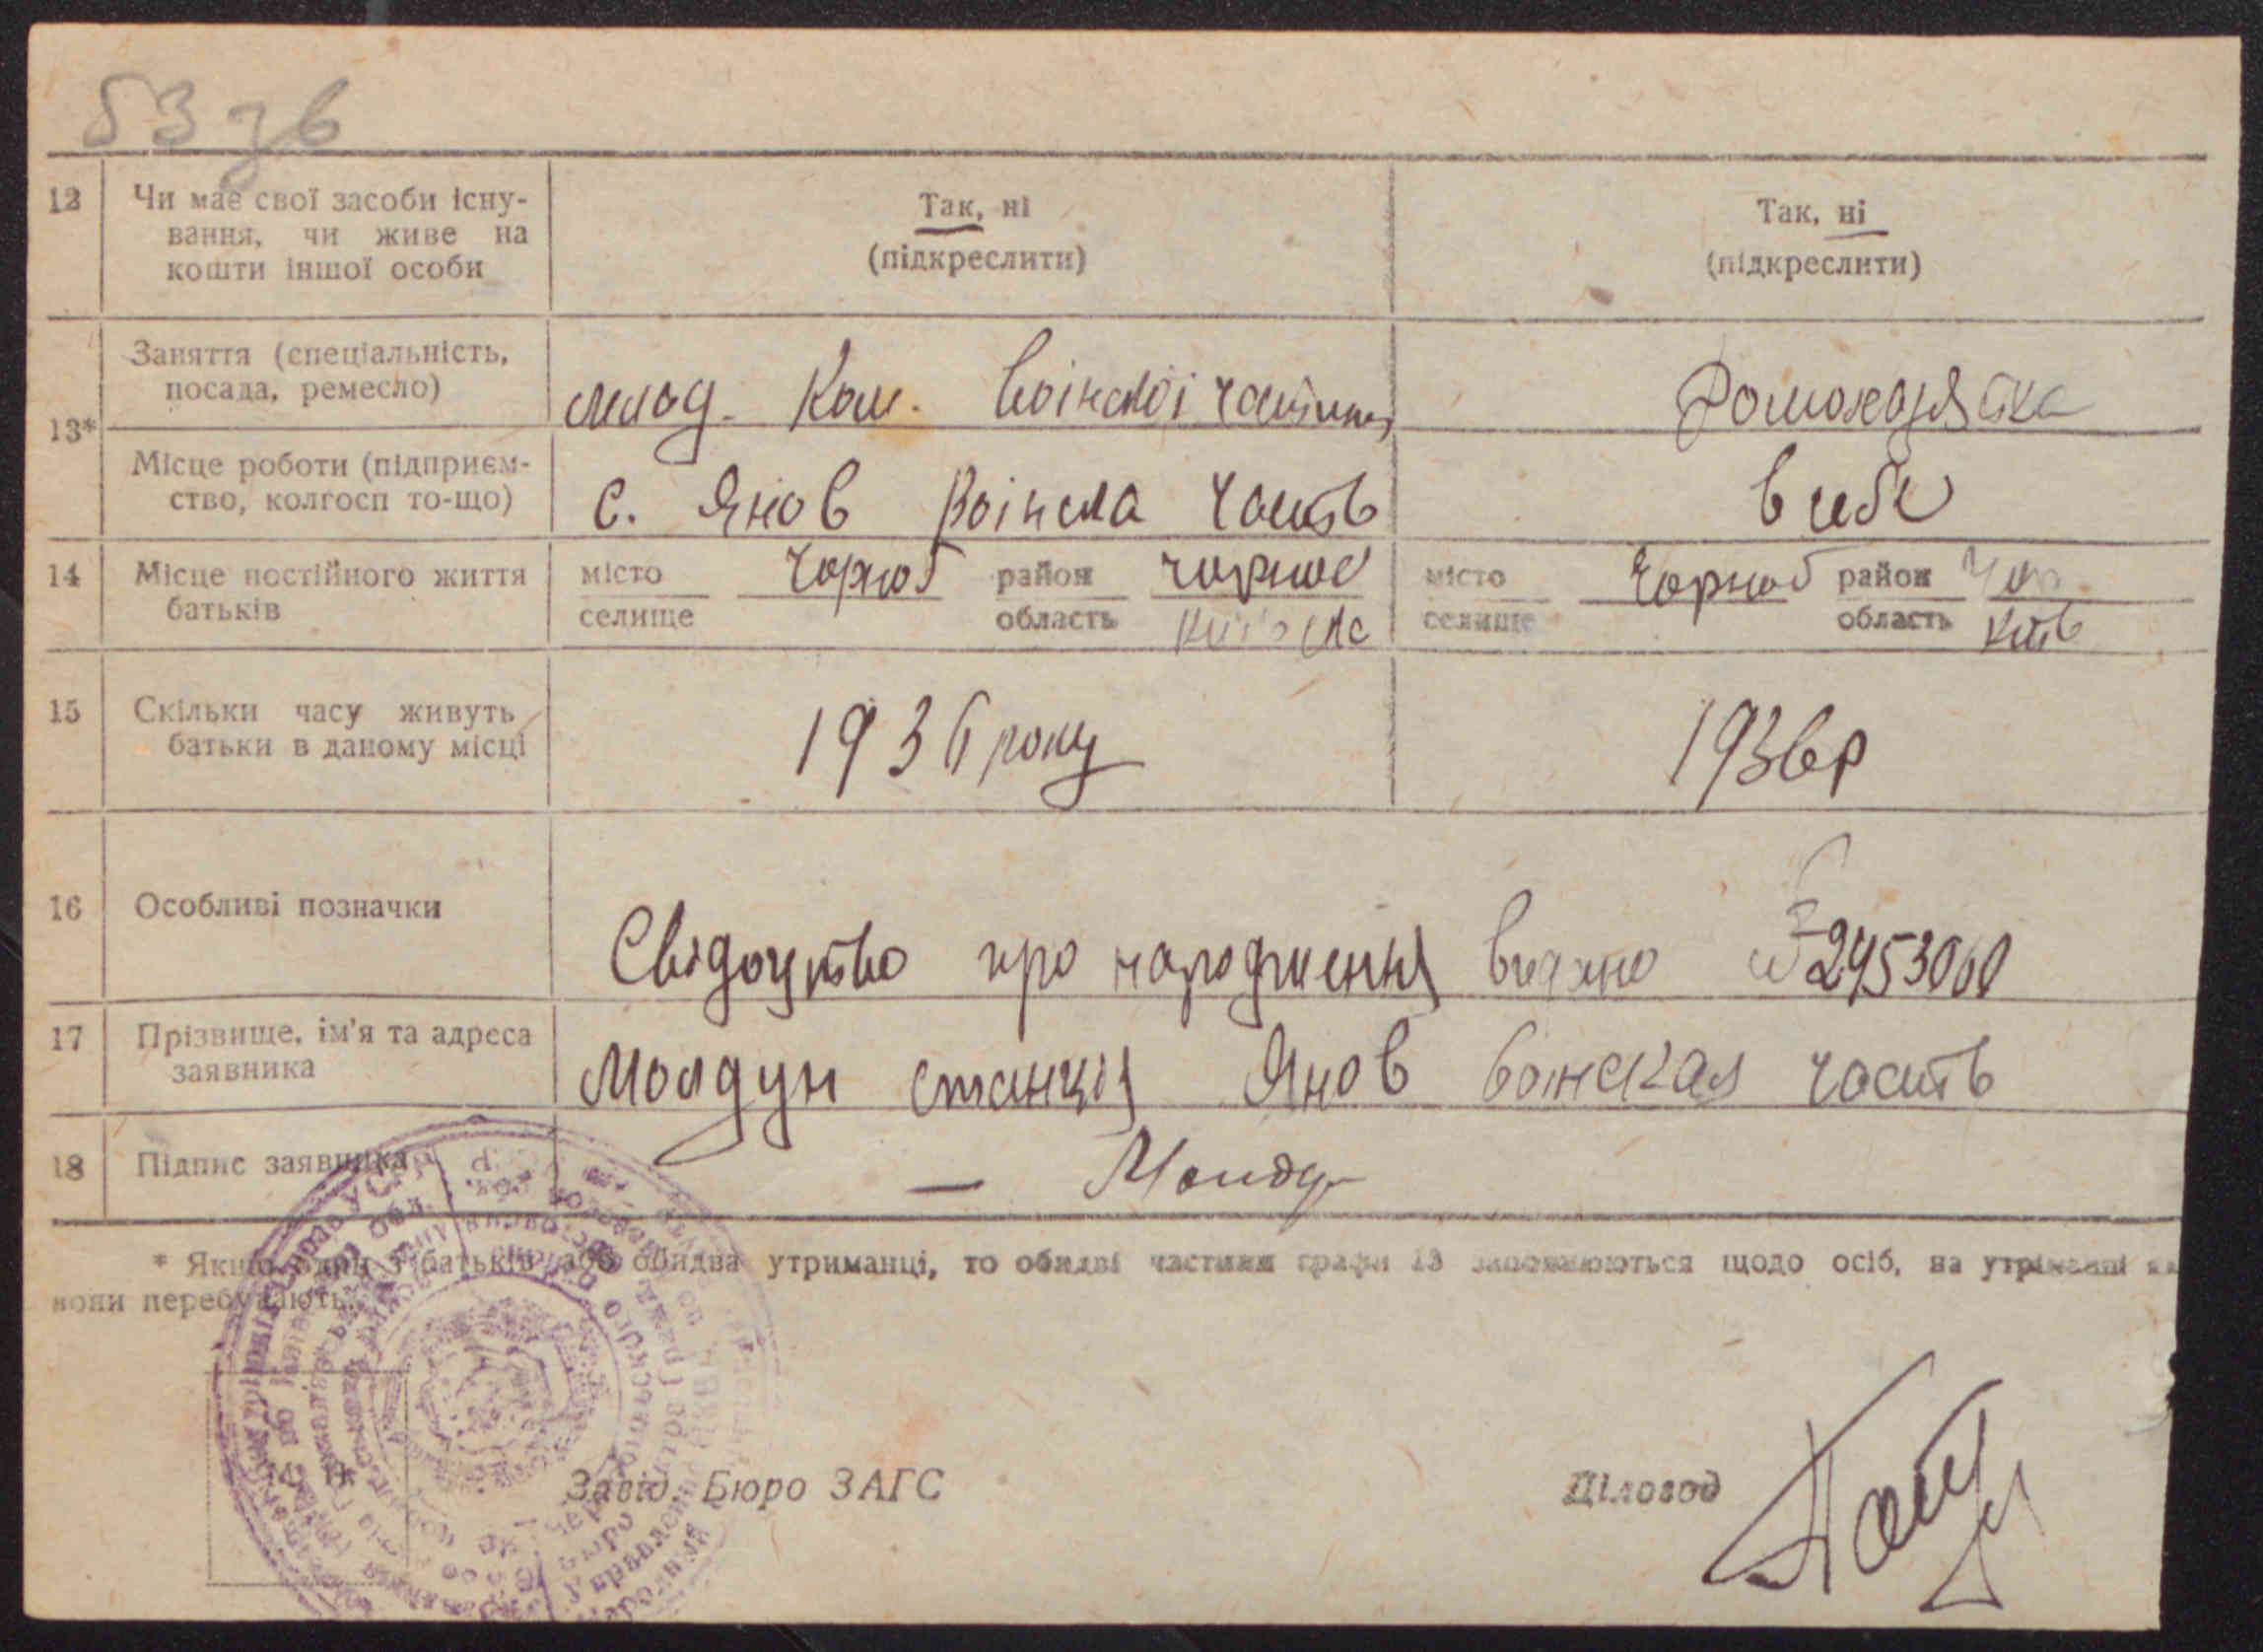 53зб
12 Чи має свої засоби існу-
вання, чи живе на
кошти іншої особи
Так, ні
(підкреслити)
Так, ні
(підкреслити)
13*
Заняття (спеціальність,
посада, ремесло)
млад. Ком. воінскої частини
Домохазяйка
Місце роботи (підприєм-
ство, колгосп то-що)
с. Янов Воінска часть
в себе
14 Місце постійного життя
батьків
місто Чорноб район Чорноб
селище область
місто Чорноб район Чор
селище область Київ
15 Скільки часу живуть
батьки в даному місці
1936 року
1936р
16 Особливі позначки
Свідоцтво про народження видано 2453060
17 Прізвище, ім'я та адреса
заявника
Молдун станція Янов воинская часть
18 Підпис заявника
— Молдун
* Якщо один з батьків або обидва утриманці, то обидві частини графи 13 заповнюються щодо осіб, на утриманні
вони перебувають.
Завід. Бюро ЗАГС
Діловод